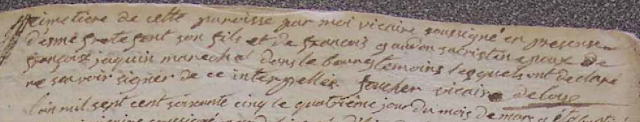 cimetiere de cette paroisse par moi vicaire soussigné en presence
son fils et de françois gaudon sacristin epoux de
françoise jaquin marechal dans le bourg temoins lesquels ont declaré
ne scavoir signer de ce interpellés. foucher vicaire
L'an mil sept cent soixante cinq le quatrième jour du mois de mars a été